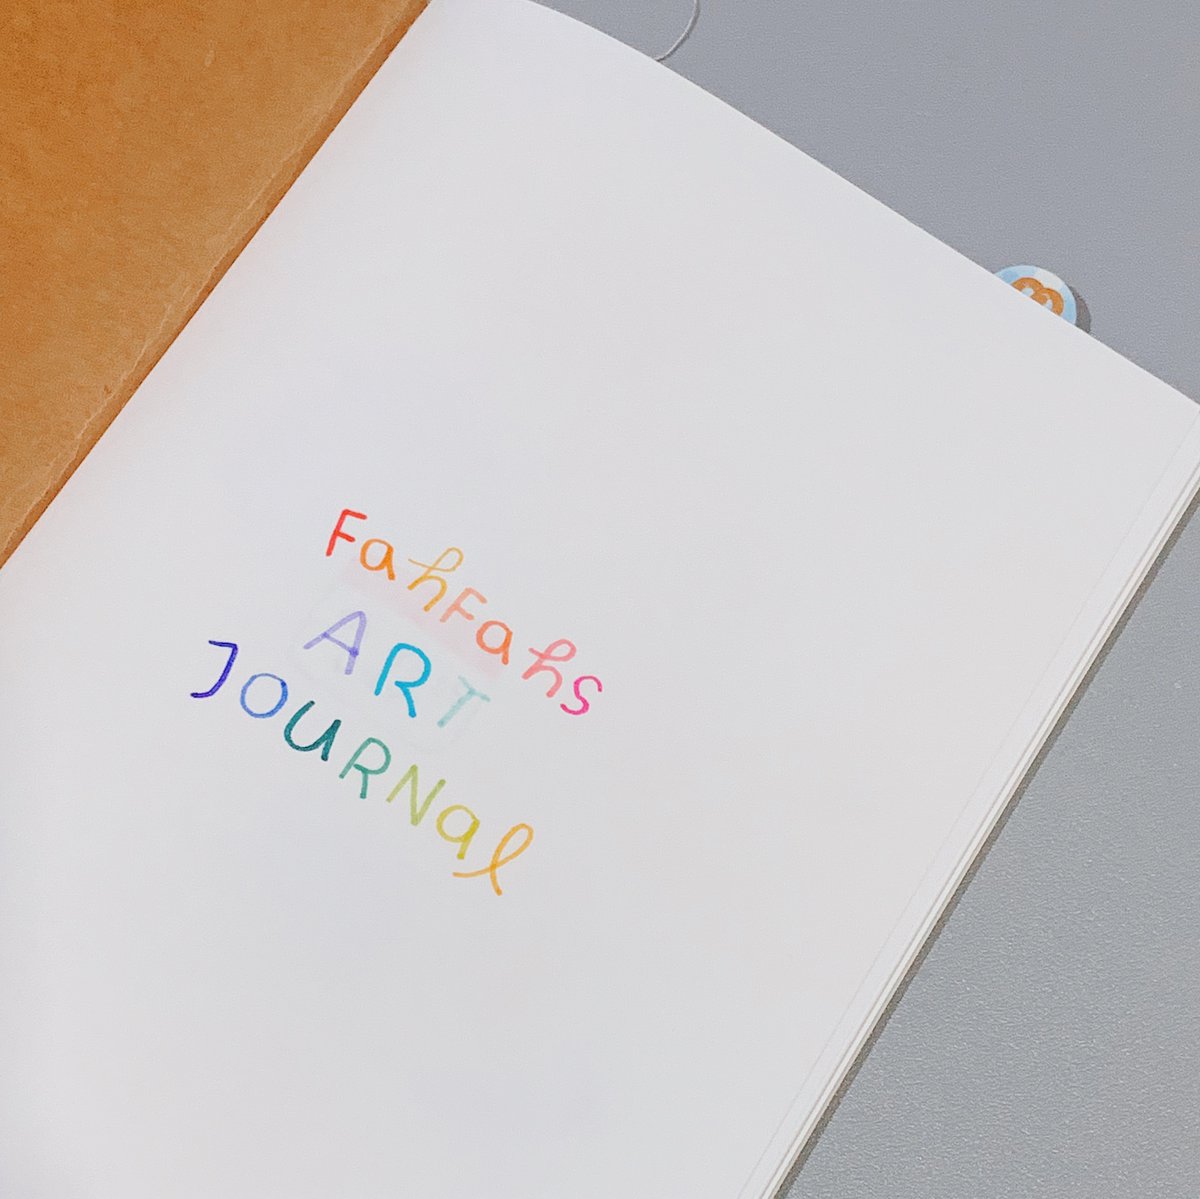 FahFahs
ART
JOURNal